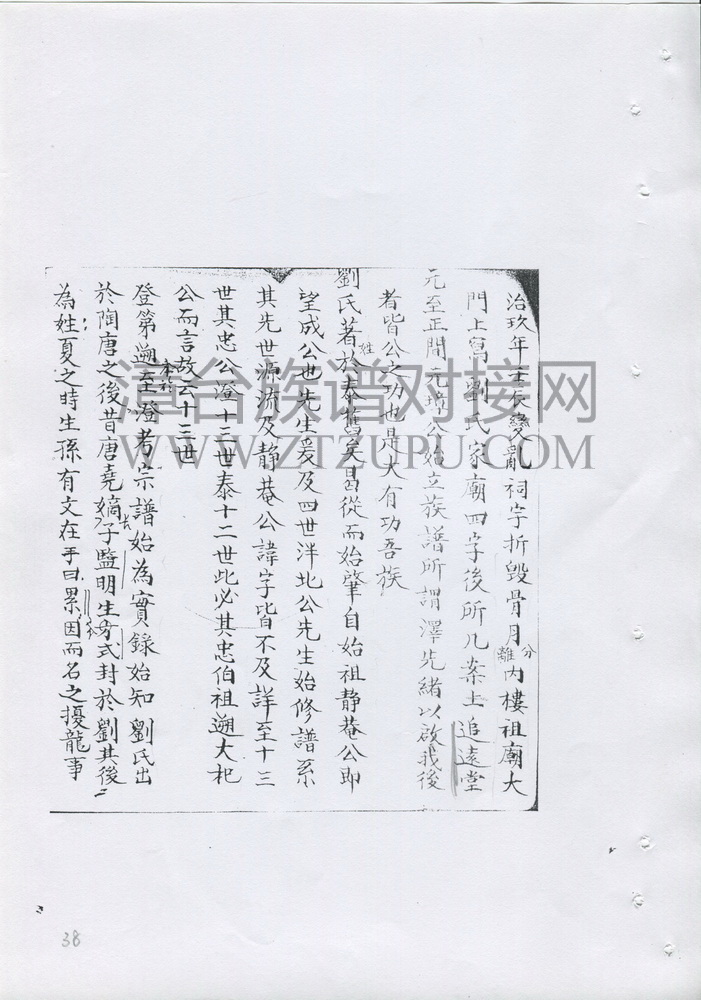 治玖年壬辰變亂祠宇折毀骨月分離內樓祖廟大
門上寫劉氏家廟四字後所几案上追遠堂
元至正間元璋公始立族譜所謂澤先緒以啟我後
者皆公之功也是大有功吾族
劉氏著姓於泰舊矣曷從而始肇自始祖静菴公即
望成公也先生爰及四世泮北公先生始修譜系
其先世源流及静菴公諱字皆不及詳至十三
世其忠公澄十三世泰十二世此必其忠伯祖遡大杞
公而言故云十三世
登第遡本於至澄考宗譜始為實錄始知劉氏出
於陶唐之後昔唐堯嫡長子監明生式封於劉其後
為姓夏之時生孫有文在手曰累因而名之擾龍事
漳台族谱对接网
WWW.ZTZUPU.COM
38